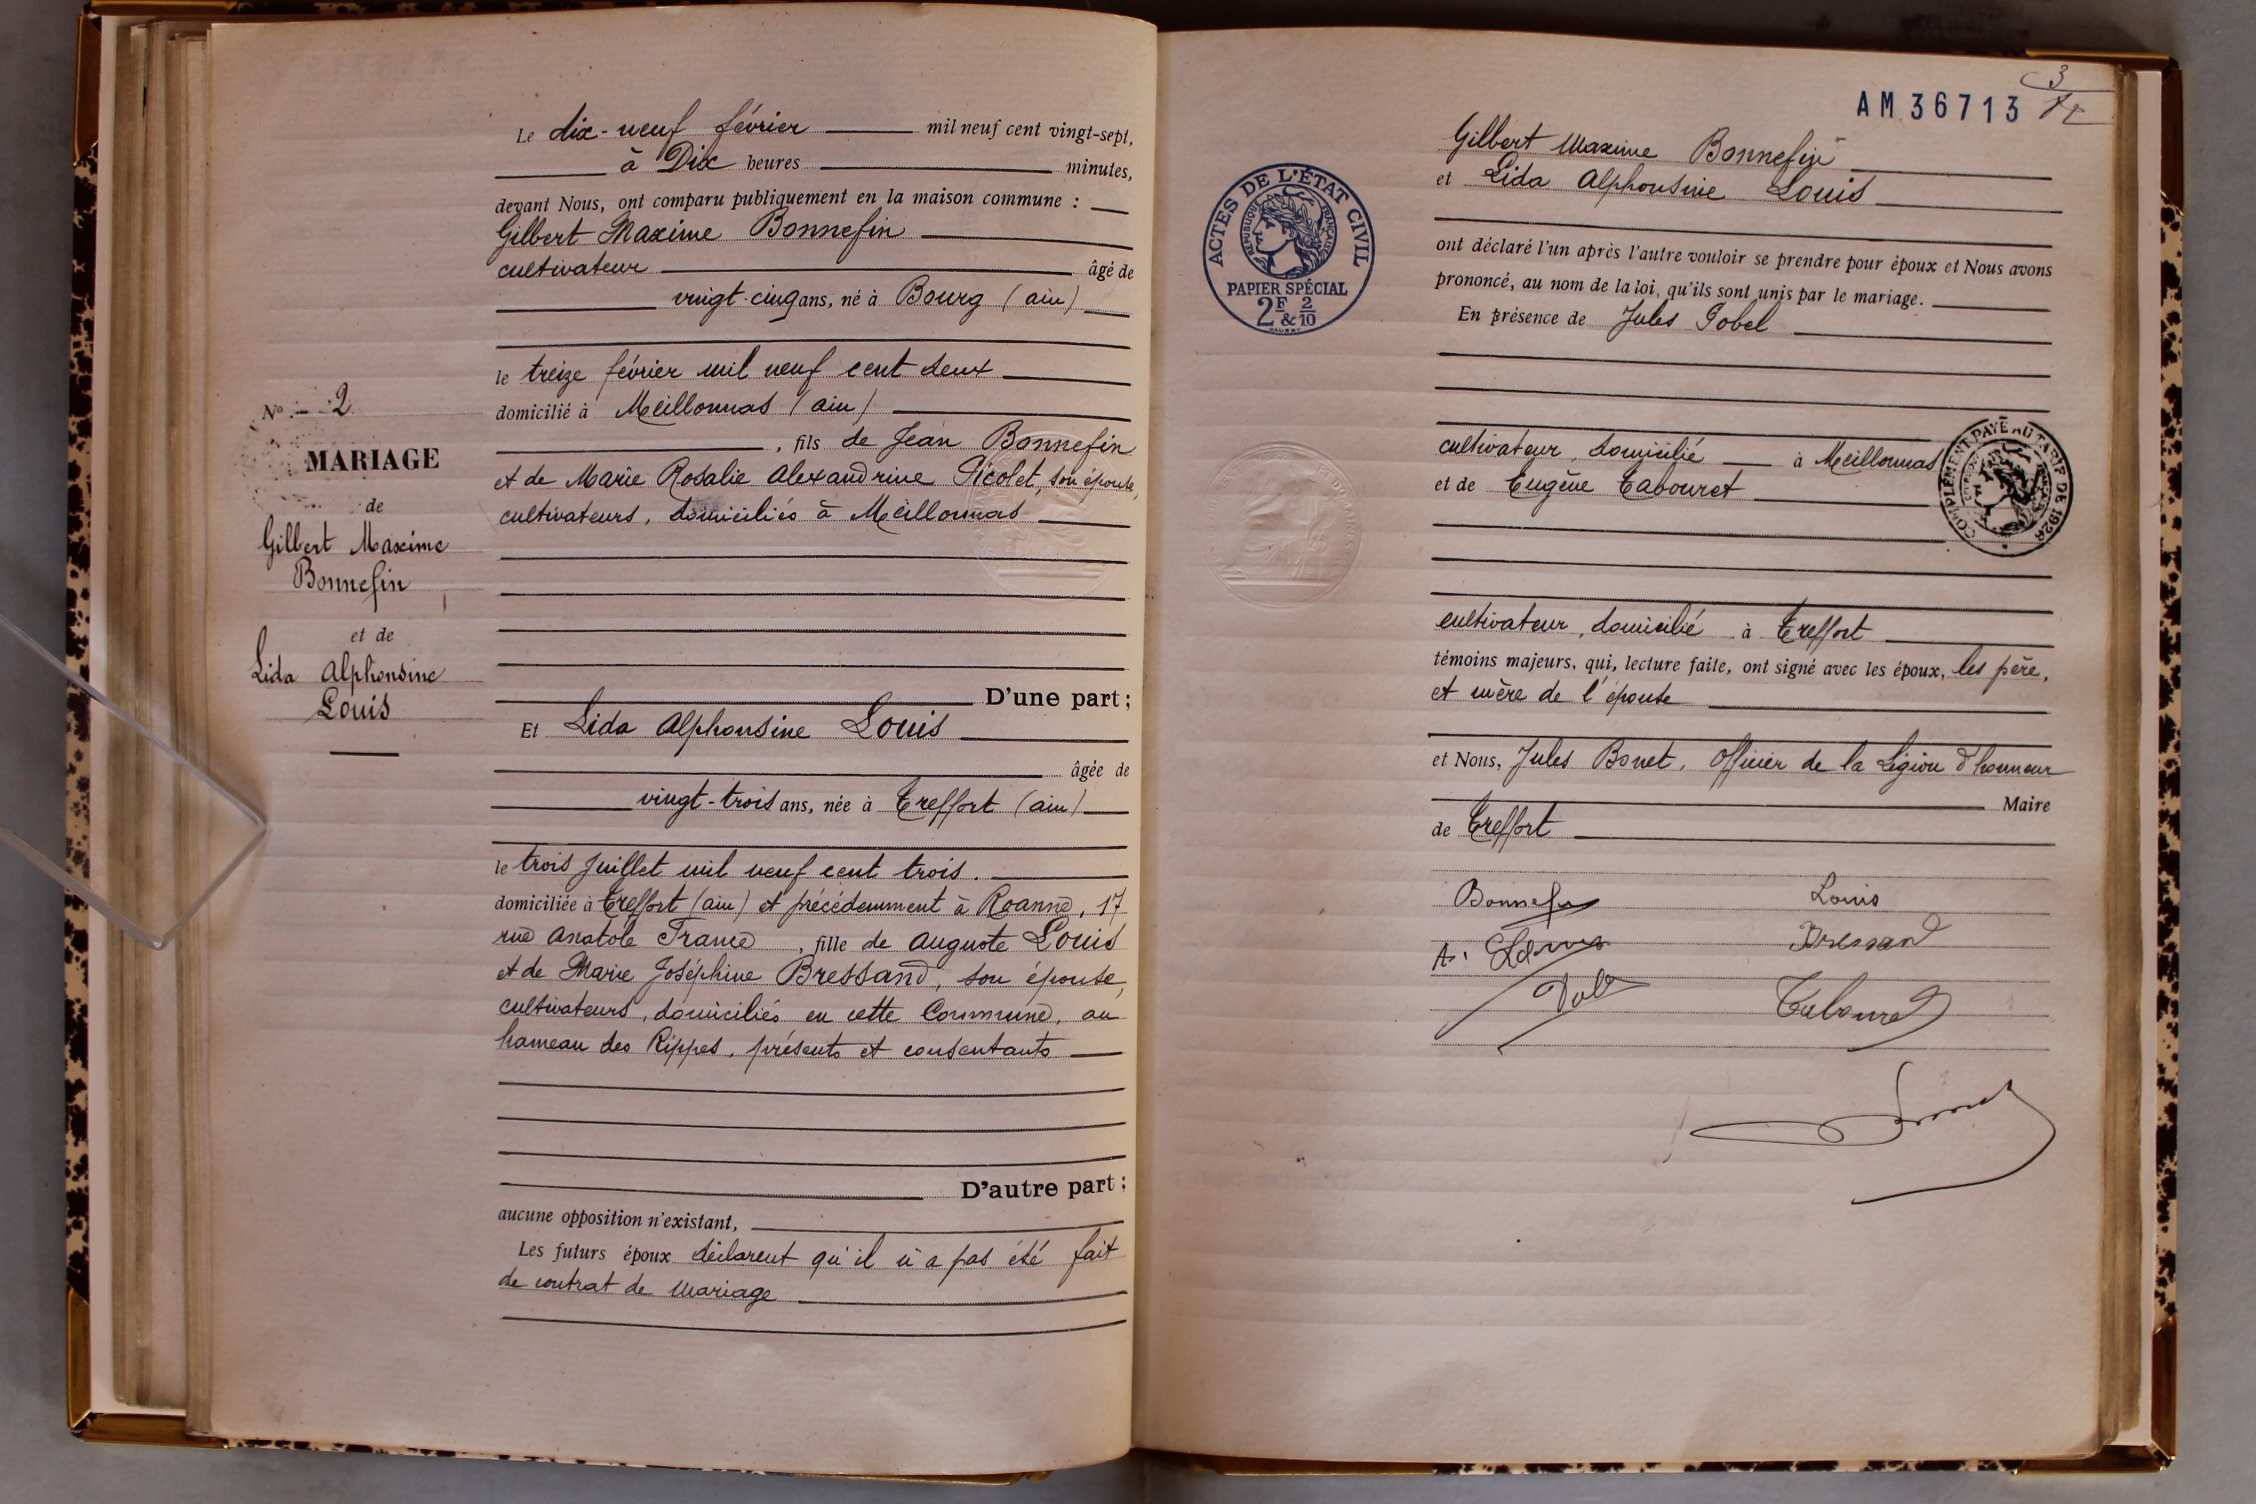 N° 2
MARIAGE
de
Gilbert Maxime
Bonnefin
et de
Lida Alphonsine
Louis
Le dix-neuf février mil neuf cent vingt-sept,
à Dix heures minutes,
devant Nous, ont comparu publiquement en la maison commune :
Gilbert Maxime Bonnefin
cultivateur âgé de
vingt-cinq ans, né à Bourg (ain)
le treize février mil neuf cent deux
domicilié à Meillonnas (ain)
, fils de Jean Bonnefin
et de Marie Rosalie Alexandrine Nicolet, son épouse,
cultivateurs, domiciliés à Meillonnas
D'une part ;
Et Lida Alphonsine Louis
âgée de
vingt-trois ans, née à Treffort (ain)
le trois Juillet mil neuf cent trois.
domiciliée à Treffort (ain) et précédemment à Roanne, 17
rue Anatole France, fille de Auguste Louis
et de Marie Joséphine Bressand, son épouse,
cultivateurs, domiciliés en cette Commune, au
hameau des Rippes, présents et consentants
D'autre part ;
aucune opposition n'existant,
Les futurs époux déclarent qu'il n'a pas été fait
de contrat de mariage
AM 36713
3
ACTES DE L'ÉTAT CIVIL
RÉPUBLIQUE FRANÇAISE
PAPIER SPÉCIAL
2F & 2/10
Gilbert Maxime Bonnefin
et Lida Alphonsine Louis
ont déclaré l'un après l'autre vouloir se prendre pour époux et Nous avons
prononcé, au nom de la loi, qu'ils sont unis par le mariage.
En présence de Jules
cultivateur, domicilié à Meillonnas
COMPLÉMENT PAYÉ AU TARIF DE 1926
et de Eugène Tabouret
cultivateur, domicilié à Treffort
témoins majeurs, qui, lecture faite, ont signé avec les époux, les père,
et mère de l'épouse
et Nous, Jules Bonet, Officier de la Légion d'honneur
Maire
de Treffort
Bonnefin Louis
A. Louis Bressand
Tabouret